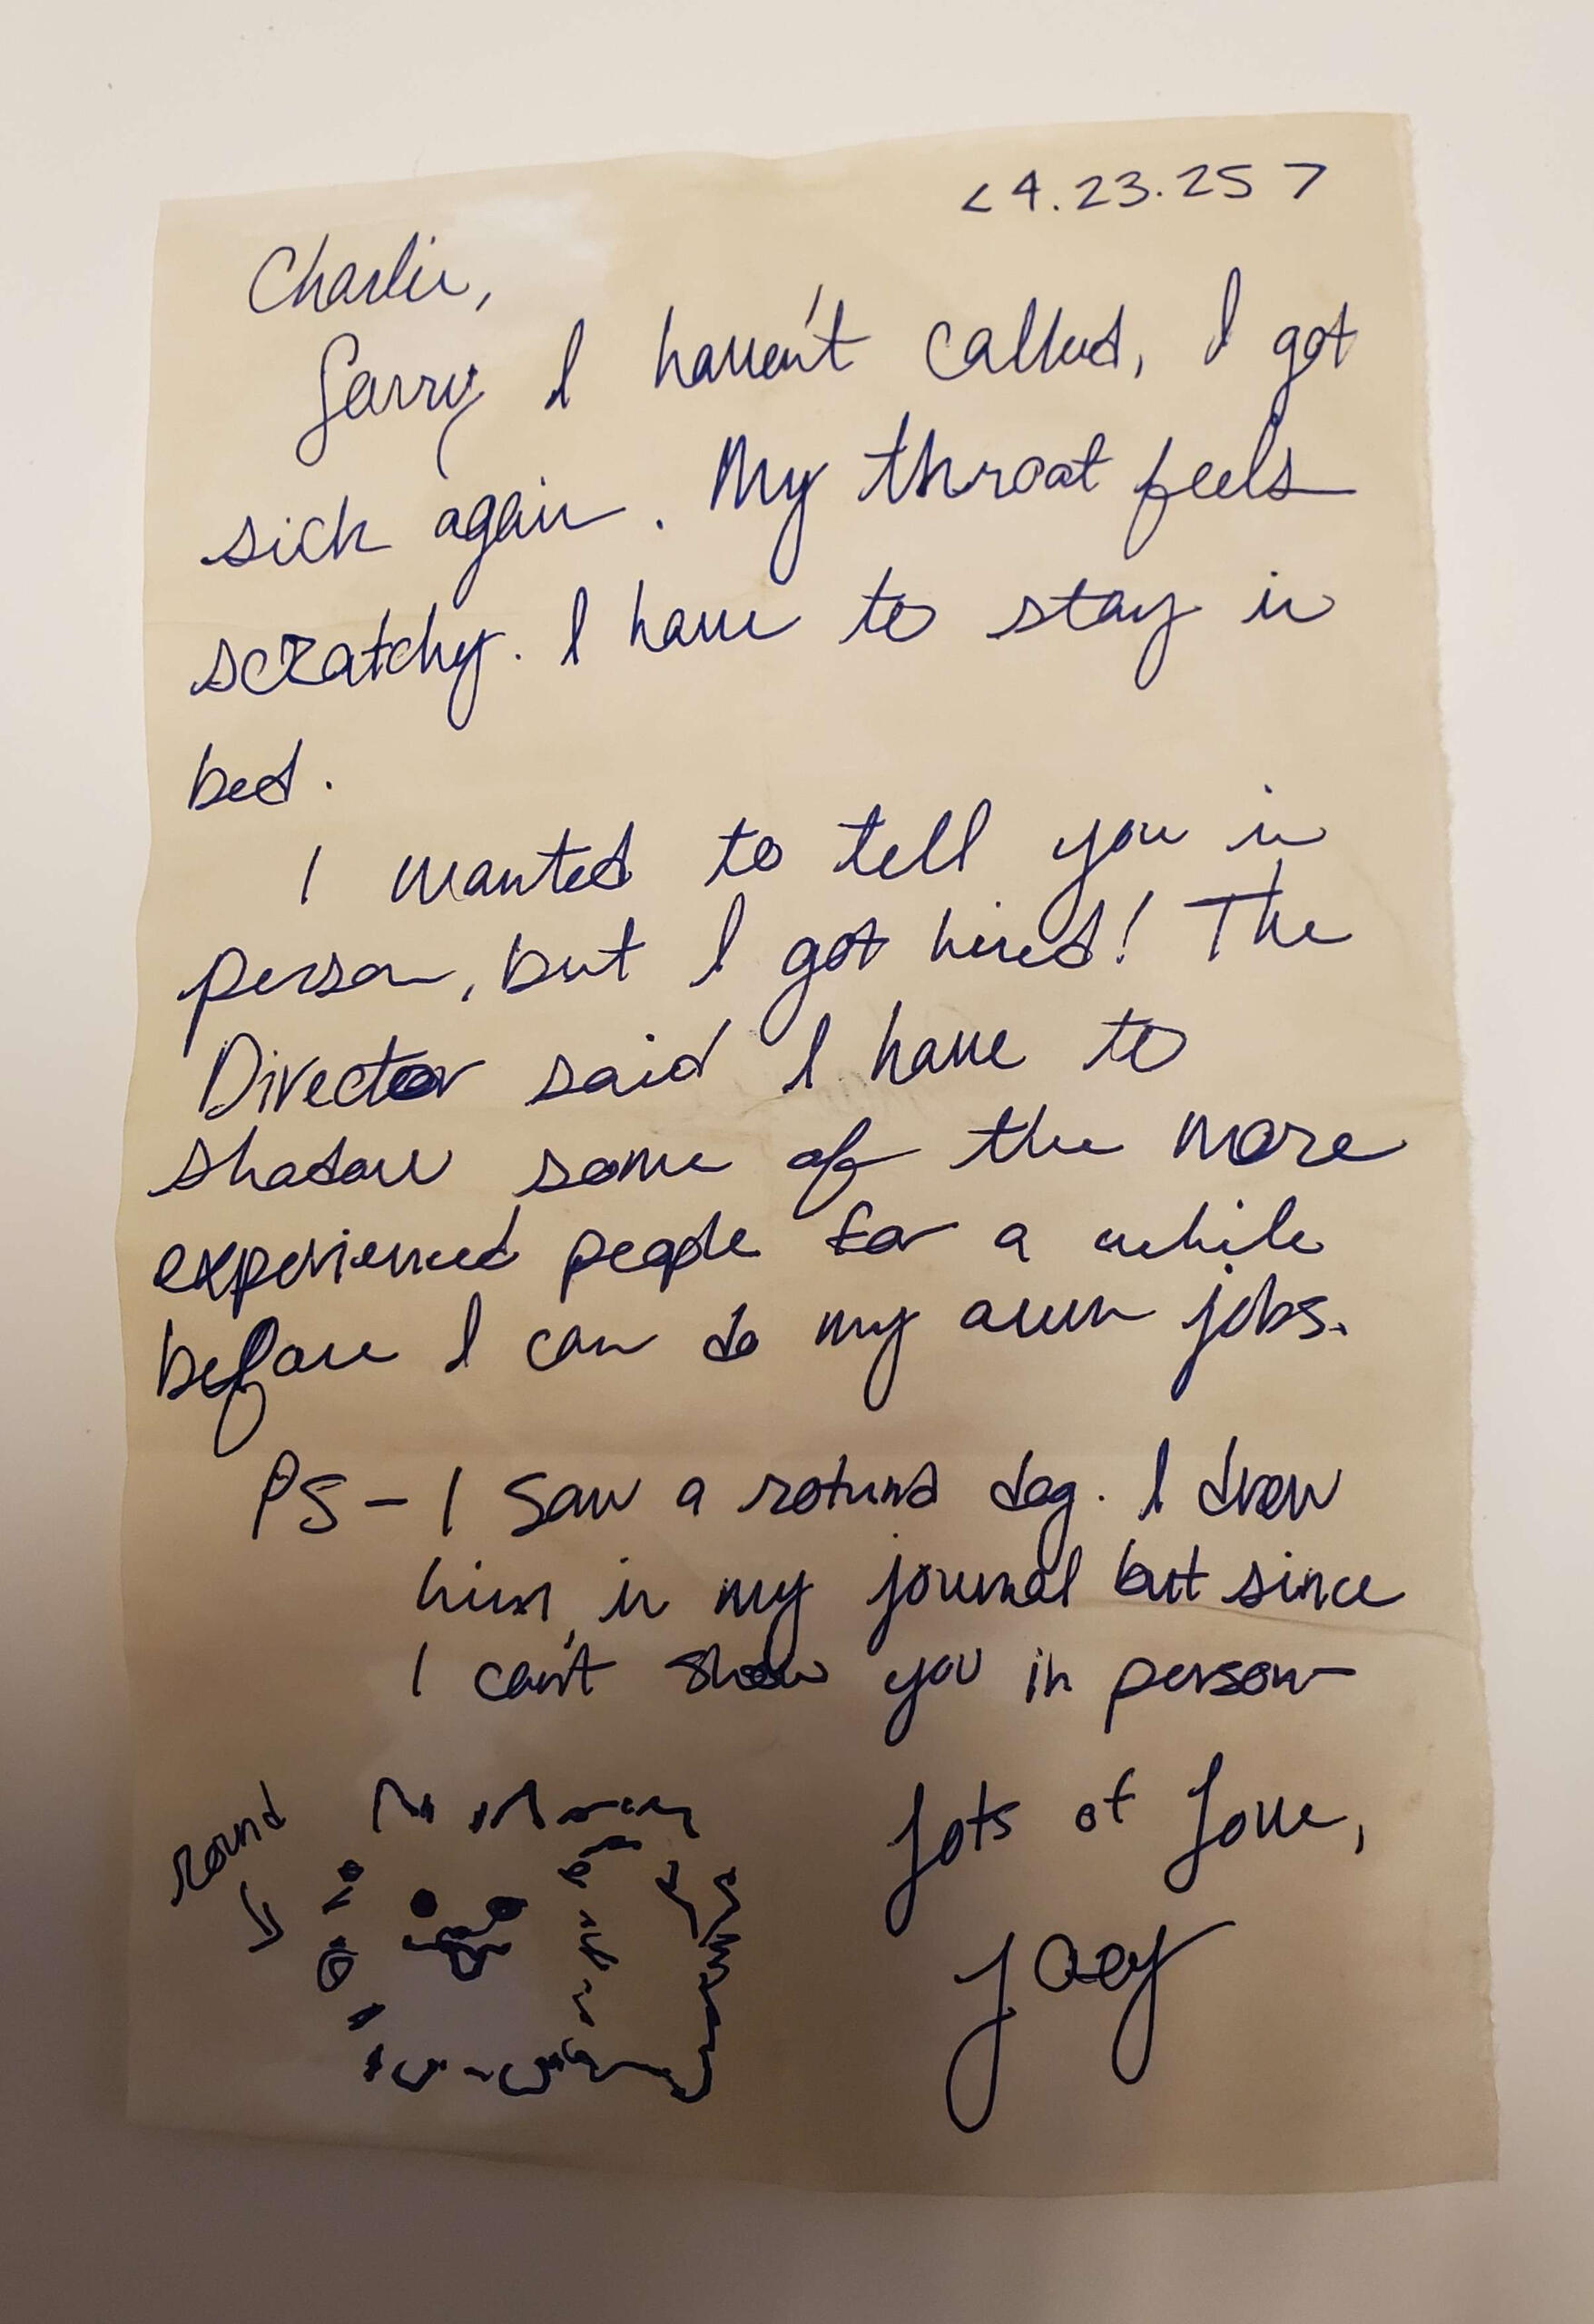 <4.23.25>
Charlie,
Sorry I haven't called, I got
sick again. My throat feels
scratchy. I have to stay in
bed.
I wanted to tell you in
person, but I got hired! The
Director said I have to
shadow some of the more
experienced people for a while
before I can do my own jobs.
PS - I saw a rotund dog. I drew
him in my journal but since
I can't show you in person
round
Lots of Love,
Joey